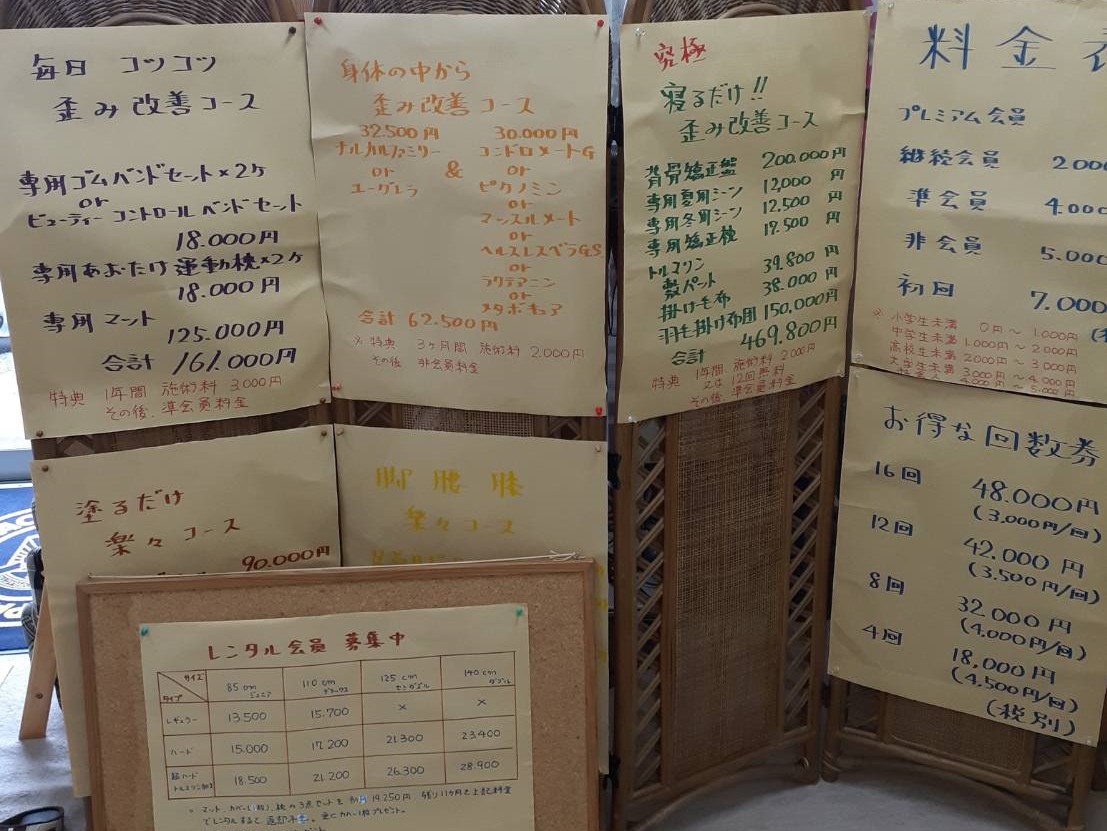 毎日 コツコツ
歪み改善コース
専用ゴムバンドセット×2ケ
or
ビューティーコントロールベンドセット
18.000円
専用あおたけ運動枕×2ケ
18.000円
専用マット
125.000円
合計 161.000円
特典 1年間 施術料 3.000円
その後、準会員料金
身体の中から
歪み改善コース
32.500円 30.000円
ナルカルファミリー コンドロメートG
or & or
ユーグレラ ピクノミン
or
マッスルメート
or
ヘルスレスベラGS
or
ラクテアニン
or
メタボキュア
合計 62.500円
※特典 3ヶ月間 施術料 2.000円
その後 非会員料金
究極
寝るだけ!!
歪み改善コース
背骨矯正盤 200.000円
専用夏用シーン 12,000円
専用冬用シーン 12.500円
専用矯正枕 17.500円
トルマリン
敷パット 39.800円
掛け毛布 38.000円
羽毛掛け布団 150,000円
合計 469.800円
特典 1年間 施術料 2000円
又は 12回無料
その後、準会員料金
料金
プレミアム会員
継続会員 2.000
準会員 4.000
非会員 5.000
初回 7.000
※小学生未満 0円～1.000円
中学生未満 1,000円～2,000円
高校生未満 2000円～3,000円
大学生未満 3,000円～4,000円
4.000円～5.000円
お得な回数券
16回 48.000円
(3,000円/回)
12回 42.000円
(3.500円/回)
8回 32.000円
(4,000円/回)
4回 18,000円
(4,500円/回)
(税別)
塗るだけ
楽々コース
90.000円
脚 腰 膝
楽々コース
レンタル会員 募集中
サイズ 85cm 110cm 125cm 140cm
タイプ ジュニア セミダブル ダブル
レギュラー 13.500 15.700 × ×
ハード 15.000 17.200 21.300 23.400
超ハード
トルマリン加工 18.500 21.200 26.300 28.900